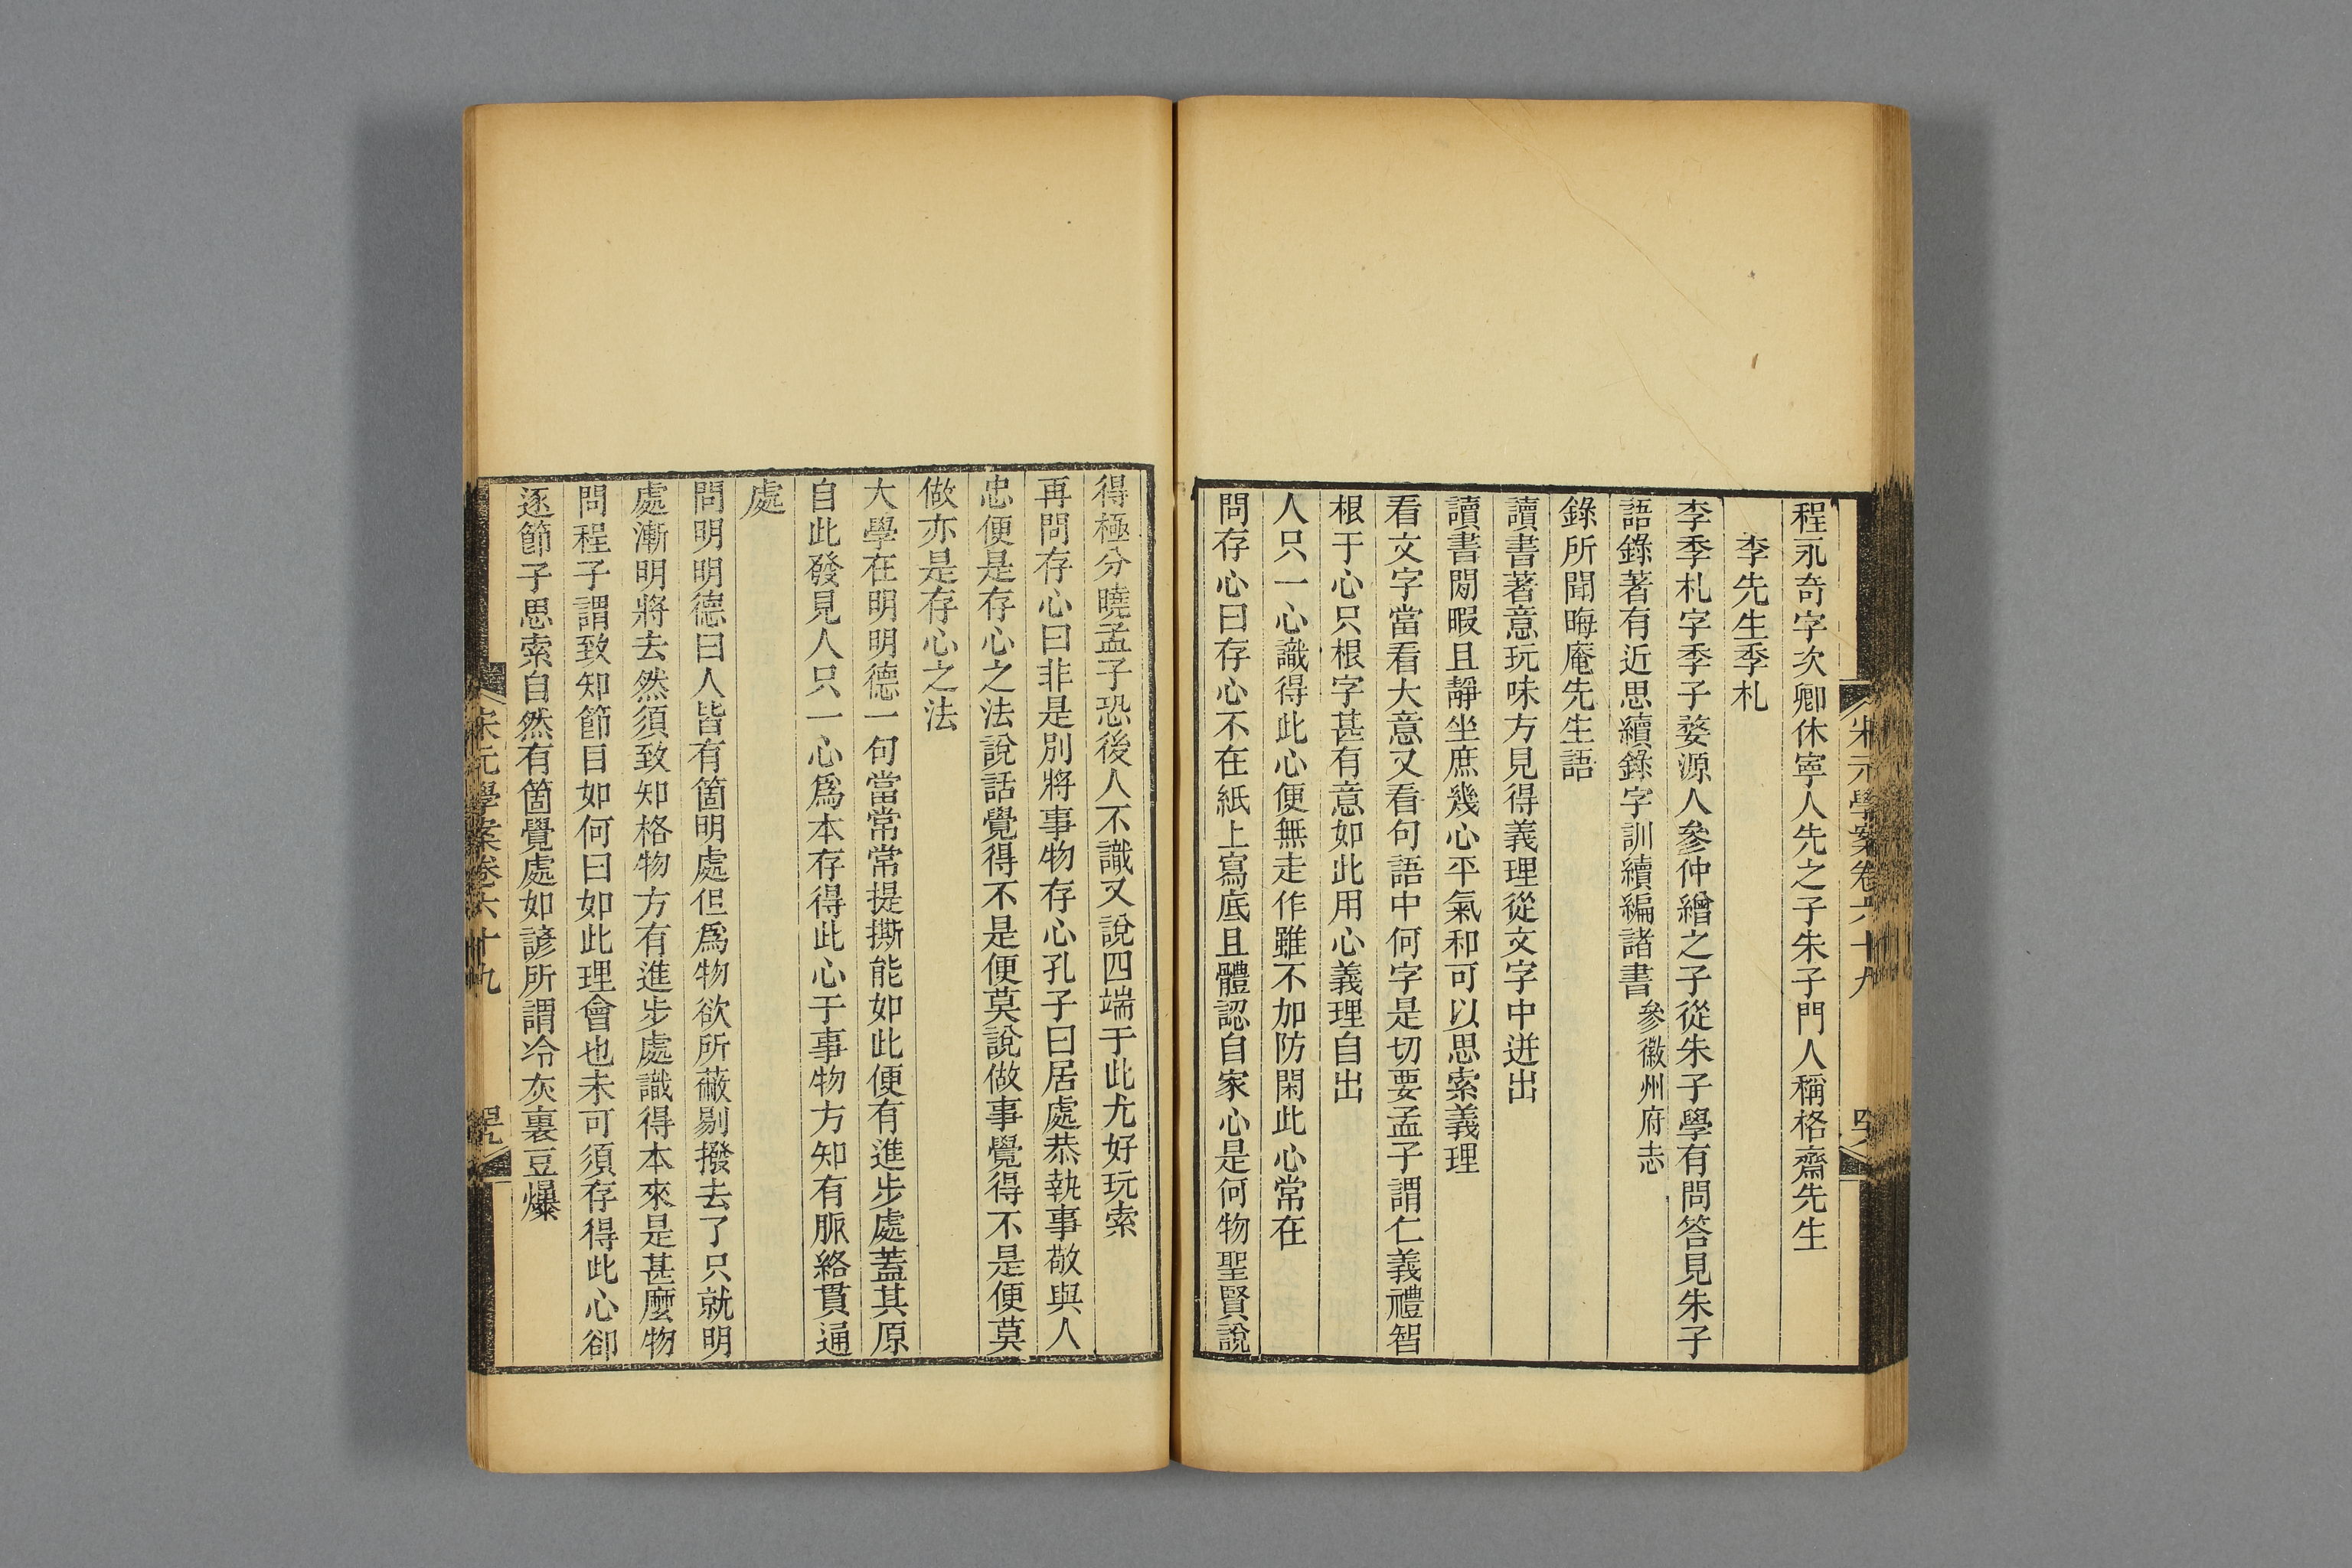 宋元學案卷六十九
程永奇字次卿休寧人先之子朱子門人稱格齋先生
李先生季札
李季札字季子婺源人參仲繒之子從朱子學有問答見朱子
語錄著有近思續錄字訓續編諸書參徽州府志
錄所聞晦庵先生語
讀書著意玩味方見得義理從文字中迸出
讀書閒暇且靜坐庶幾心平氣和可以思索義理
看文字當看大意又看句語中何字是切要孟子謂仁義禮智
根于心只根字甚有意如此用心義理自出
人只一心識得此心便無走作雖不加防閑此心常在
問存心曰存心不在紙上寫底且體認自家心是何物聖賢說
得極分曉孟子恐後人不識又說四端于此尤好玩索
再問存心曰非是別將事物存心孔子曰居處恭執事敬與人
忠便是存心之法說話覺得不是便莫說做事覺得不是便莫
做亦是存心之法
大學在明明德一句當常常提撕能如此便有進步處蓋其原
自此發見人只一心爲本存得此心于事物方知有脈絡貫通
處
問明明德曰人皆有箇明處但爲物欲所蔽剔撥去了只就明
處漸明將去然須致知格物方有進步處識得本來是甚麼物
問程子謂致知節目如何曰如此理會也未可須存得此心卻
逐節子思索自然有箇覺處如諺所謂冷灰裏豆爆
宋元學案卷六十九